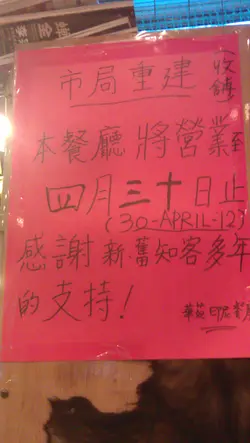 市局重建(收鋪)
本餐廳將營業至
四月三十日止
(30-APRIL-12)
感謝新舊知客多年
的支持!
華苑印尼餐廳